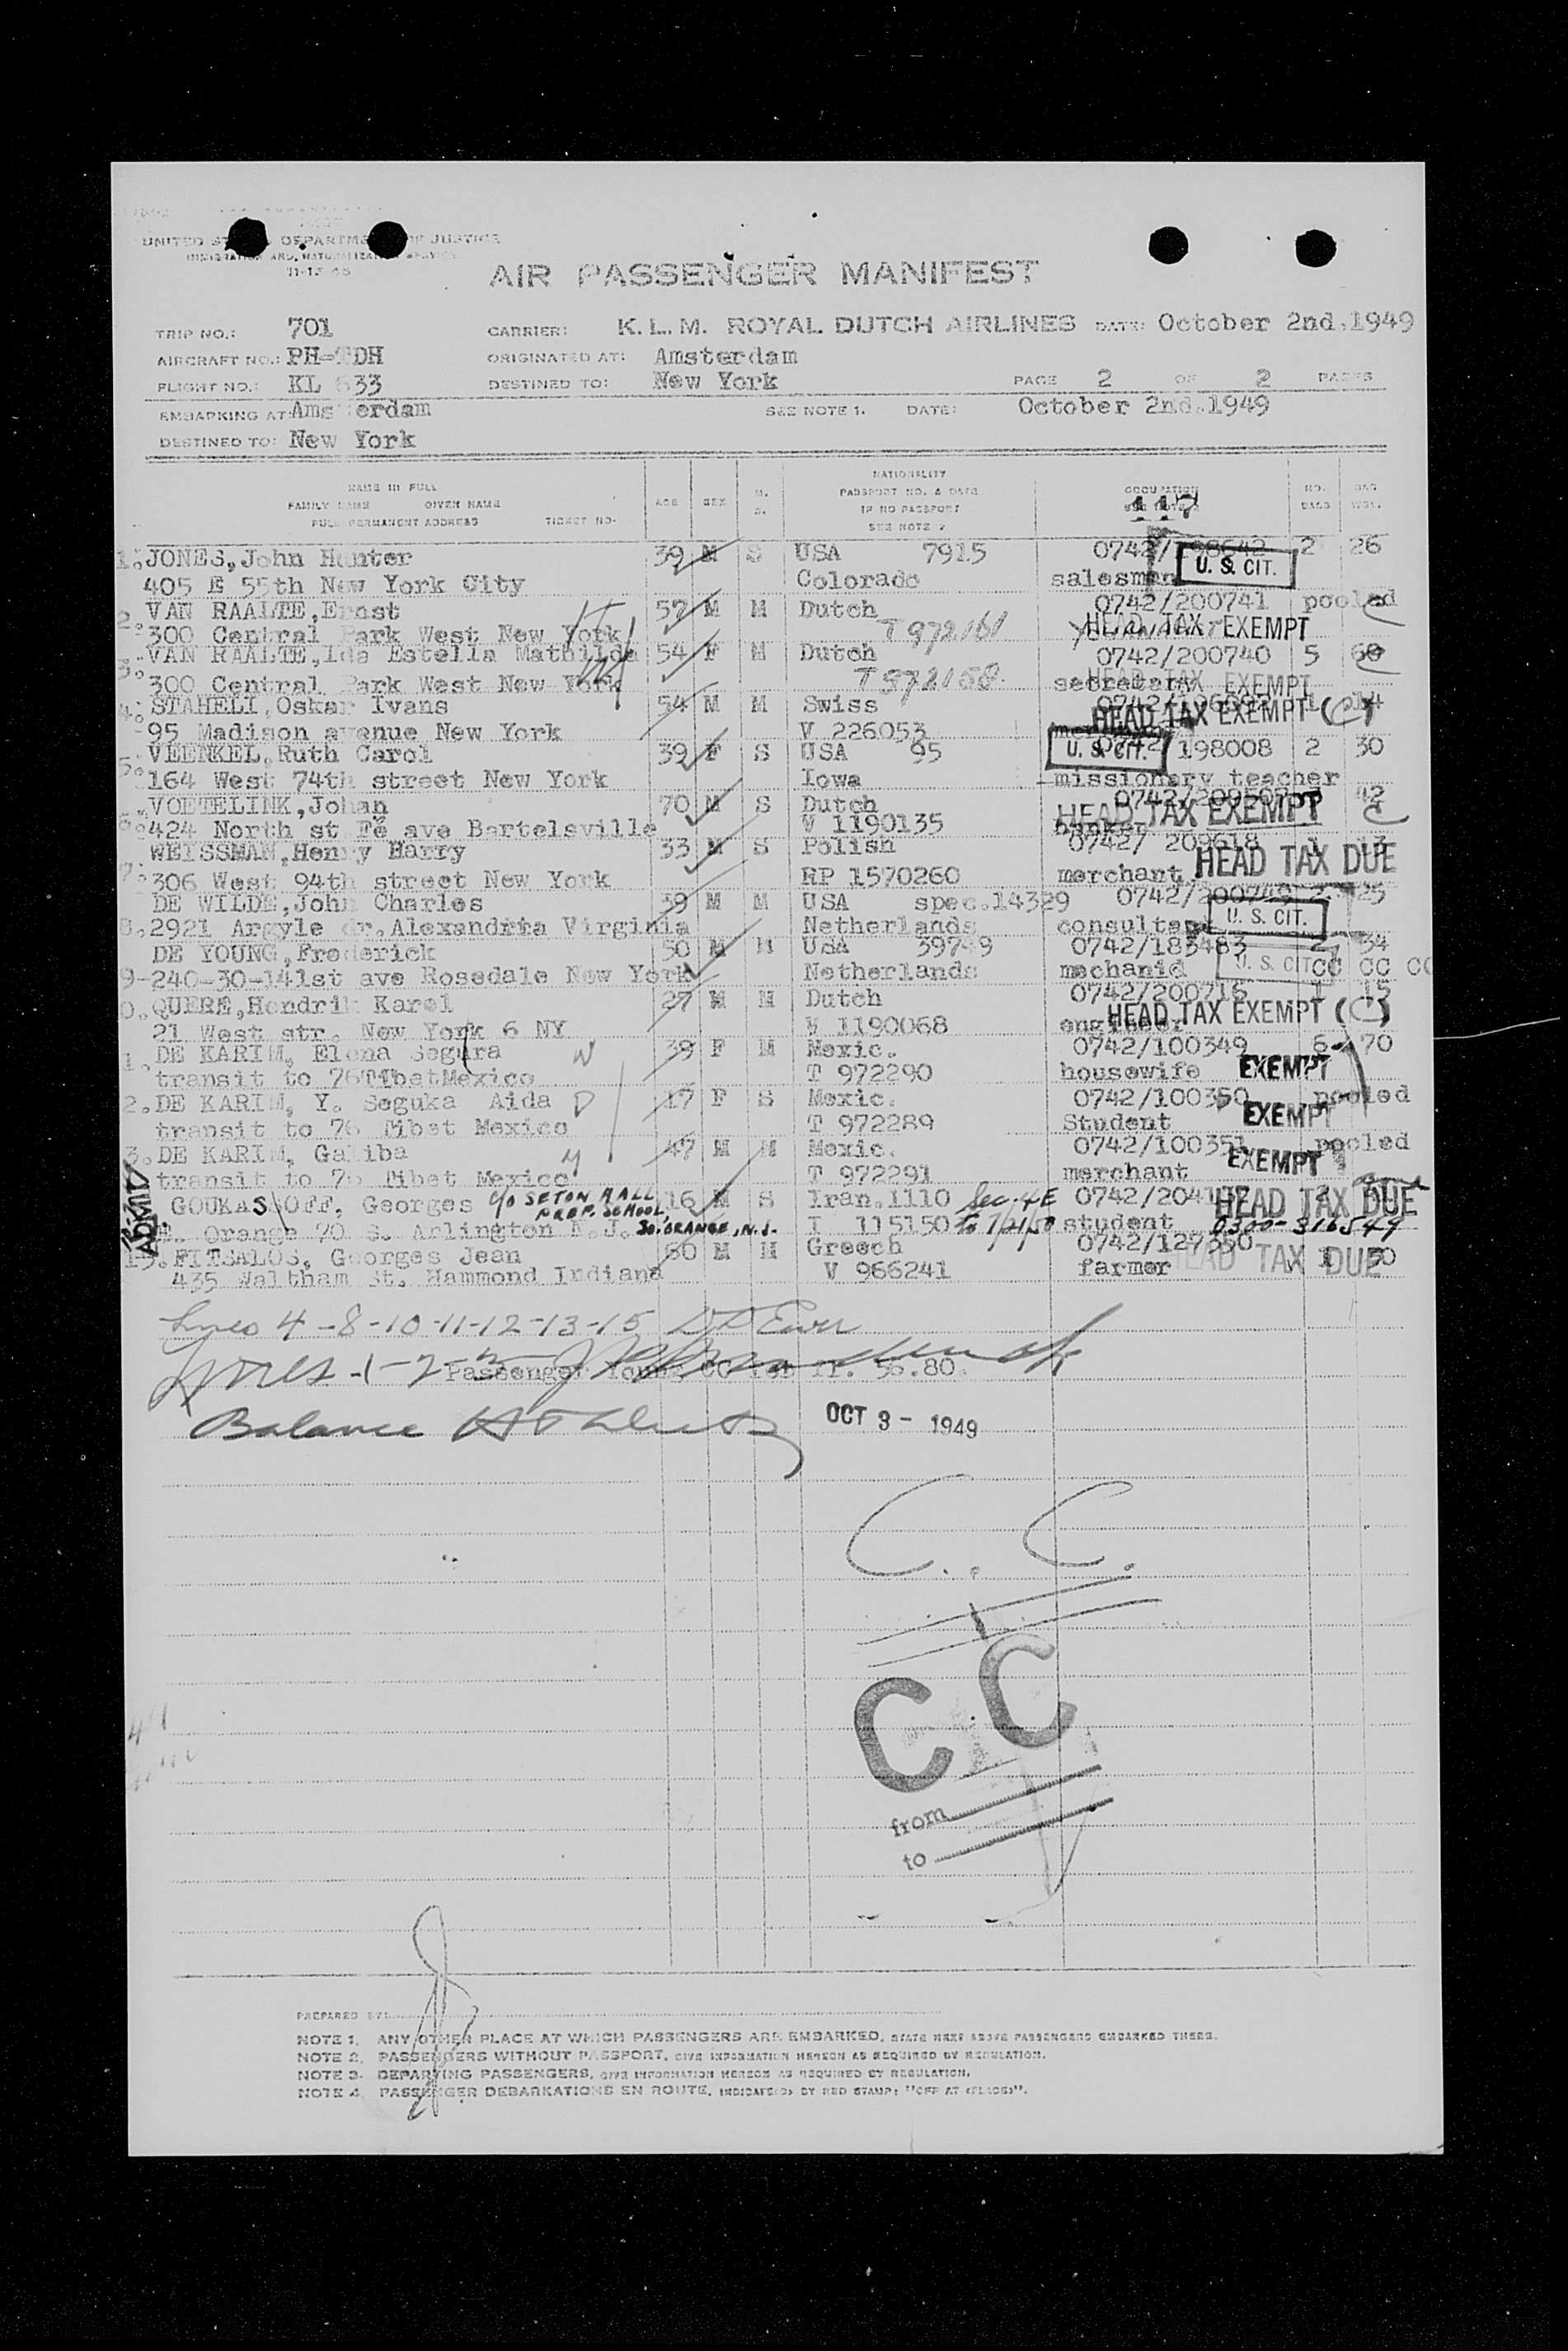 UNITED DEPARTMENT OF JUSTICE
IMMIGRATION AND NATURALIZATION SERVICE
AIR PASSENGER MANIFEST
TRIP NO.: 701 CARRIER: K.L.M. ROYAL DUTCH AIRLINES DATE: October 2nd.1949
AIRCRAFT NO.: PH-TDH ORIGINATED AT: Amsterdam
FLIGHT NO.: KL 633 DESTINED TO: New York PAGE 2 OF 2 PAGES
EMBARKING AT: Amsterdam SEE NOTE 1. DATE: October 2nd.1949
DESTINED TO: New York
NAME IN FULL
FAMILY NAME GIVEN NAME
FULL PERMANENT ADDRESS TICKET NO.
AGE SEX M. S.
NATIONALITY
PASSPORT NO. & DATE
IF NO PASSPORT
SEE NOTE 2
OCCUPATION
117
NO. BAGS BAG WGT.
1. JONES, John Hunter 39 M S USA 7915 2 26
405 E 55th New York City Colorado salesman U. S. CIT.
2. VAN RAALTE, Ernst 57 M M Dutch 0742/200741 pooled
300 Central Park West New York T 972161 HEAD TAX EXEMPT
3. VAN RAALTE, Ida Estella Mathilda 54 F M Dutch 0742/200740 5 60
300 Central Park West New York T972158 secretary HEAD TAX EXEMPT
4. STAHELI, Oskar Ivans 54 M M Swiss 1 14
95 Madison avenue New York V 226053 HEAD TAX EXEMPT (C)
5. VEENKEL, Ruth Carol 39 F S USA 95 0742/198008 2 30
164 West 74th street New York Iowa missionary teacher U. S. CIT.
6. VOETELINK, Johan 70 M S Dutch 42
424 North st Fe ave Bartelsville V 1190135 banker HEAD TAX EXEMPT
7. WEISSMAN, Henry Harry 33 M S Polish 0742/ 209618 1 13
306 West 94th street New York RP 1570260 merchant HEAD TAX DUE
DE WILDE, John Charles 39 M M USA spec.14329 0742/200749 2 25
8. 2921 Argyle dr. Alexandria Virginia Netherlands consultant U. S. CIT.
DE YOUNG, Frederick 50 M M USA 39749 0742/183483 2 34
9-240-30-141st ave Rosedale New York Netherlands mechanic U. S. CIT. CC CC CC
0. QUERE, Hendrik Karel 27 M M Dutch 0742/200716 1 15
21 West str. New York 6 NY V 1190068 engineer HEAD TAX EXEMPT (C)
1. DE KARIM, Elena Segura W 39 F M Mexic. 0742/100349 6 70
transit to 76 Tibet Mexico T 972290 housewife EXEMPT
2. DE KARIM, Y. Seguka Aida D 17 F S Mexic. 0742/100350 pooled
transit to 76 Tibet Mexico T 972289 Student EXEMPT
3. DE KARIM, Galiba M 47 M M Mexic. 0742/100351 pooled
transit to 76 Tibet Mexico T 972291 merchant EXEMPT
ADMITD GOUKASSOFF, Georges C/O SETON HALL PREP. SCHOOL 16 M S Iran.1110 Sec. 4E HEAD TAX DUE
E. Orange 70 S. Arlington N.J. SO. ORANGE, N.J. I 115150 to 1/21/50 student 0300-316549
15. FITSALOS, Georges Jean 60 M M Greech 0742/127350 1 30
435 Waltham St. Hammond Indiana V 966241 farmer HEAD TAX DUE
Lines 4-8-10-11-12-13-15
Lines -1-2-3-
Passenger 56.80.
Balance
OCT 3 - 1949
C. C.
CC
from
to
PREPARED BY:
NOTE 1. ANY OTHER PLACE AT WHICH PASSENGERS ARE EMBARKED, STATE NEXT ABOVE PASSENGERS EMBARKED THERE.
NOTE 2. PASSENGERS WITHOUT PASSPORT, GIVE INFORMATION HEREON AS REQUIRED BY REGULATION.
NOTE 3. DEPARTING PASSENGERS, GIVE INFORMATION HEREON AS REQUIRED BY REGULATION.
NOTE 4. PASSENGER DEBARKATIONS EN ROUTE, INDICATE(D) BY RED STAMP: "OFF AT (PLACE)".